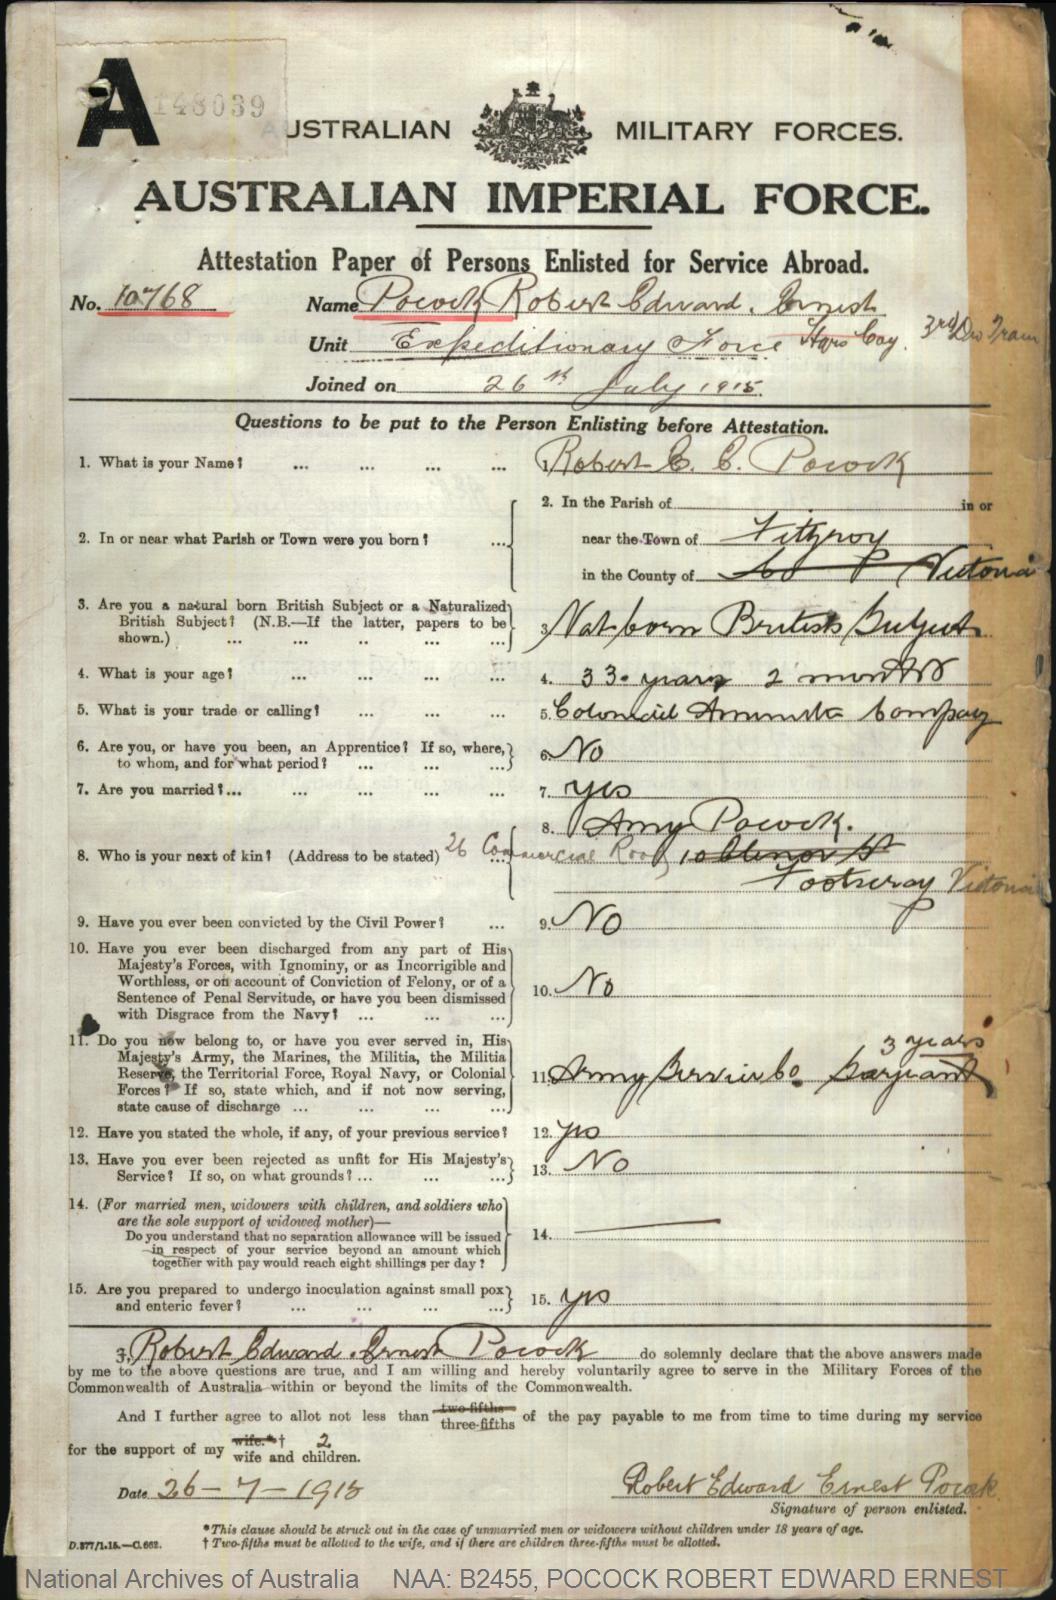 A
148039
AUSTRALIAN MILITARY FORCES.
AUSTRALIAN IMPERIAL FORCE.
Attestation Paper of Persons Enlisted for Service Abroad.
No. 10768 Name Pocock Robert Edward. Ernest
Unit Expeditionary Force Hqrs Coy. 3rd Div Train
Joined on 26th July 1915.
Questions to be put to the Person Enlisting before Attestation.
1. What is your Name? ... ... ... ... 1. Robert E. E. Pocock
2. In or near what Parish or Town were you born? ... 2. In the Parish of in or
near the Town of Fitzroy
in the County of Victoria
3. Are you a natural born British Subject or a Naturalized
British Subject? (N.B.—If the latter, papers to be
shown.) ... ... ... ... ... 3. Nat born British Subject
4. What is your age? ... ... ... ... 4. 33. years 2 months
5. What is your trade or calling? ... ... ... 5. Colonial Ammunt Company
6. Are you, or have you been, an Apprentice? If so, where,
to whom, and for what period? ... ... ... 6. No
7. Are you married?... ... ... ... ... 7. yes
8. Who is your next of kin? (Address to be stated) ... 8. Amy Pocock.
26 Commercial Road, 10 Elenor St
Footscray Victoria
9. Have you ever been convicted by the Civil Power? ... 9. No
10. Have you ever been discharged from any part of His
Majesty's Forces, with Ignominy, or as Incorrigible and
Worthless, or on account of Conviction of Felony, or of a
Sentence of Penal Servitude, or have you been dismissed
with Disgrace from the Navy? ... ... ... 10. No
11. Do you now belong to, or have you ever served in, His
Majesty's Army, the Marines, the Militia, the Militia
Reserve, the Territorial Force, Royal Navy, or Colonial
Forces? If so, state which, and if not now serving,
state cause of discharge ... ... ... ... 11. Army Service Co. Sargeant 3 years
12. Have you stated the whole, if any, of your previous service? 12. yes
13. Have you ever been rejected as unfit for His Majesty's
Service? If so, on what grounds? ... ... ... 13. No
14. (For married men, widowers with children, and soldiers who
are the sole support of widowed mother)—
Do you understand that no separation allowance will be issued
in respect of your service beyond an amount which
together with pay would reach eight shillings per day? 14.
15. Are you prepared to undergo inoculation against small pox
and enteric fever? ... ... ... ... 15. yes
I, Robert Edward. Ernest Pocock do solemnly declare that the above answers made
by me to the above questions are true, and I am willing and hereby voluntarily agree to serve in the Military Forces of the
Commonwealth of Australia within or beyond the limits of the Commonwealth.
And I further agree to allot not less than two-fifths three-fifths of the pay payable to me from time to time during my service
for the support of my wife.*† wife and 2 children.
Date 26-7-1915 Robert Edward Ernest Pocock
Signature of person enlisted.
*This clause should be struck out in the case of unmarried men or widowers without children under 18 years of age.
D.377/1.15.—C.662. † Two-fifths must be allotted to the wife, and if there are children three-fifths must be allotted.
National Archives of Australia NAA: B2455, POCOCK ROBERT EDWARD ERNEST